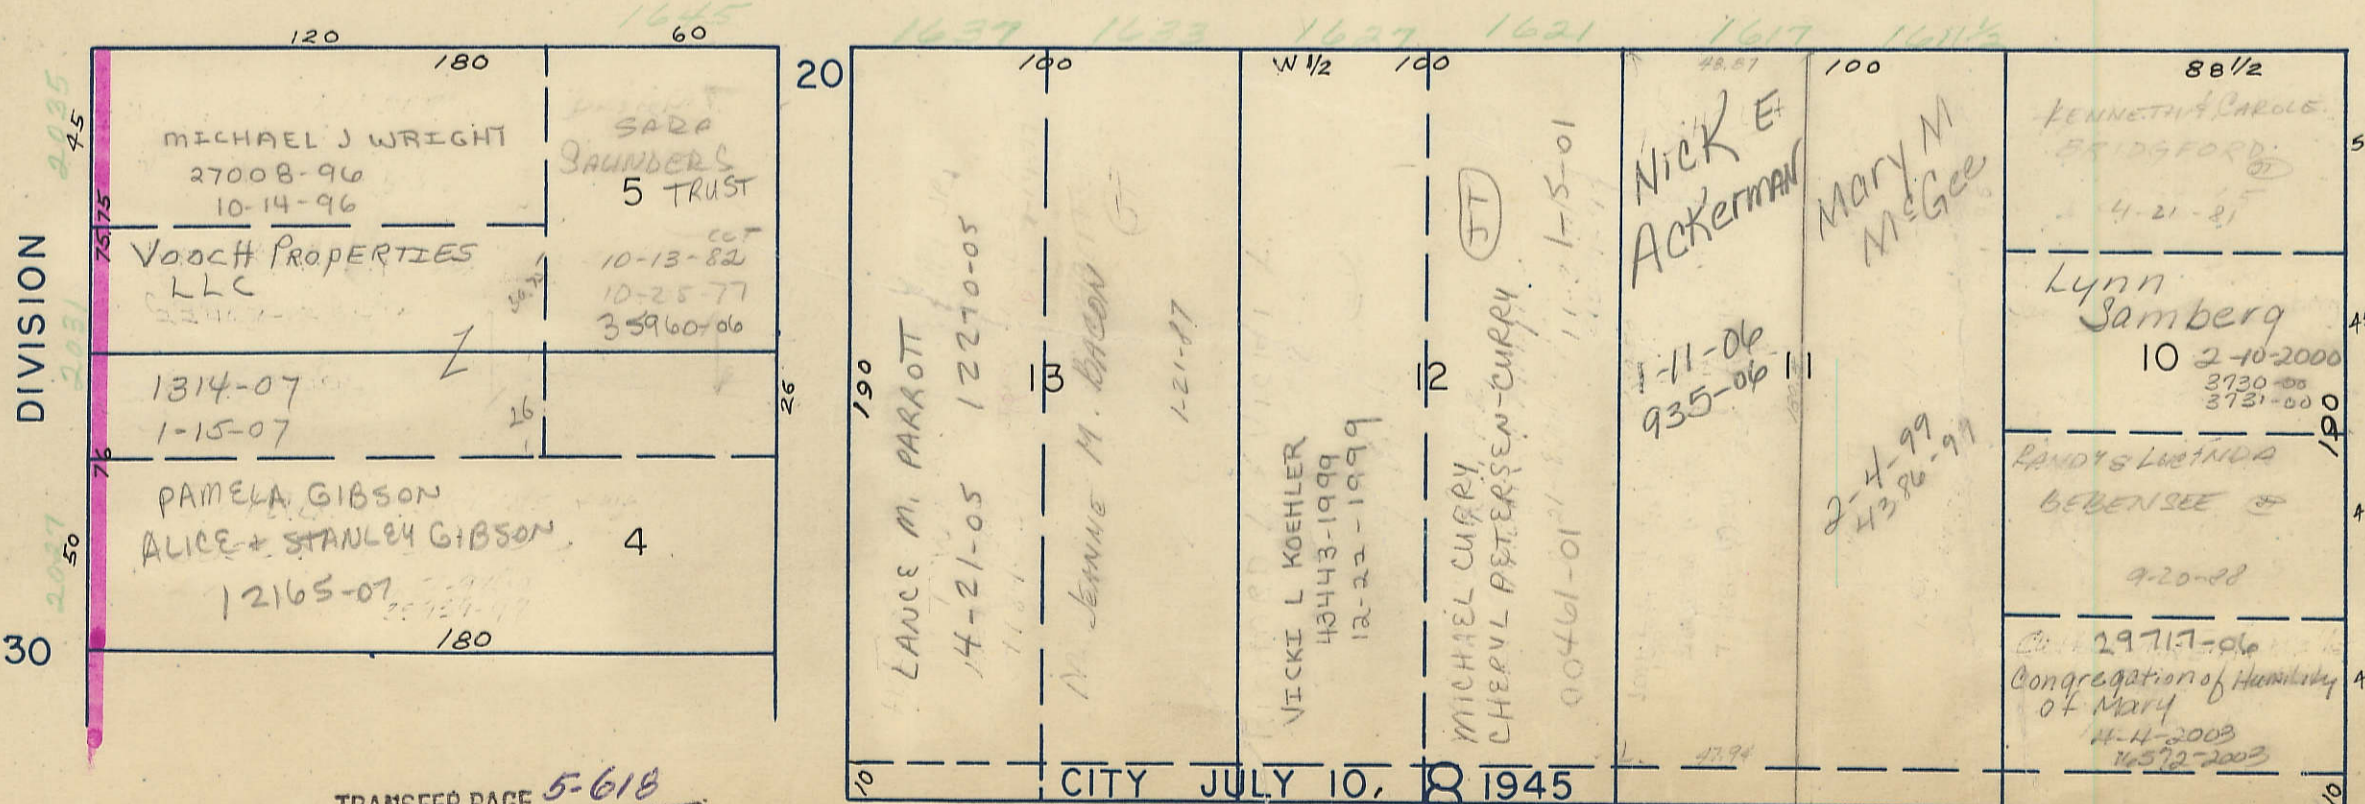 1645
1637
1633
1627
1621
1617
1611½
120
60
180
20
100
W ½
100
48.87
100
88 ½
DIVISION
2035
45
75
75
2031
76
2027
50
30
MICHAEL J WRIGHT
27008-96
10-14-96
SARA
SAUNDERS
5 TRUST
10-13-82
10-25-77
35960-06
VOOCH PROPERTIES
LLC
1314-07
1-15-07
26
26
PAMELA GIBSON
ALICE + STANLEY GIBSON
4
12165-07
180
TRANSFER PAGE 5-618
190
LANCE M. PARROTT
14-21-05 12270-05
13
JEANNE M. BACON
1-21-87
VICKI L KOEHLER
43443-1999
12-22-1999
12
MICHAEL CURRY
CHERYL PETERSEN-CURRY
JT
00461-01
1-15-01
Nick E
Ackerman
-11-06
935-06
11
47.94
Mary M
McGee
2-4-99
4386-99
KENNETH & CAROLE
BRIDGFORD
4-21-81
5
Lynn
Samberg
10 2-10-2000
3730-00
3731-00
190
RANDY & LUCINDA
BEBENSEE
9-20-88
29717-06
Congregation of Humility
of Mary
4-4-2003
16572-2003
10
CITY JULY 10, 1945
10